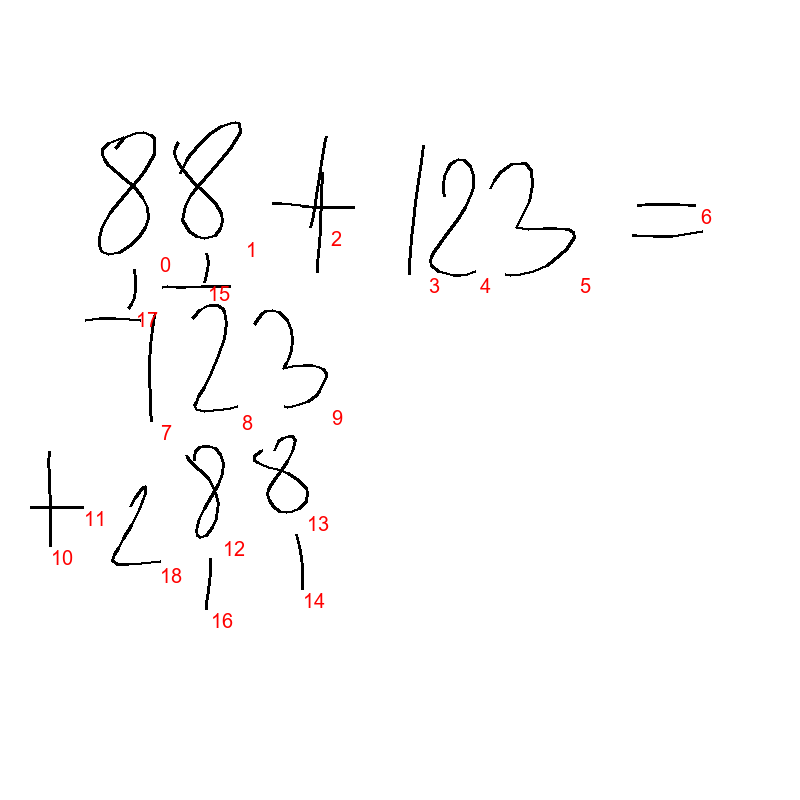 88 + 123 =
0 1 2 3 4 5 6
1 1
17 15
123
7 8 9
+ 288
10 11 18 12 13
1 1
16 14